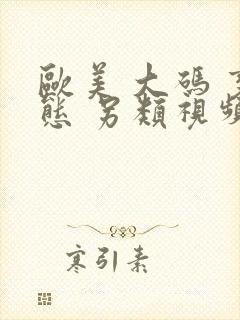 歐美 大碼 
態 另類視頻
寒引素